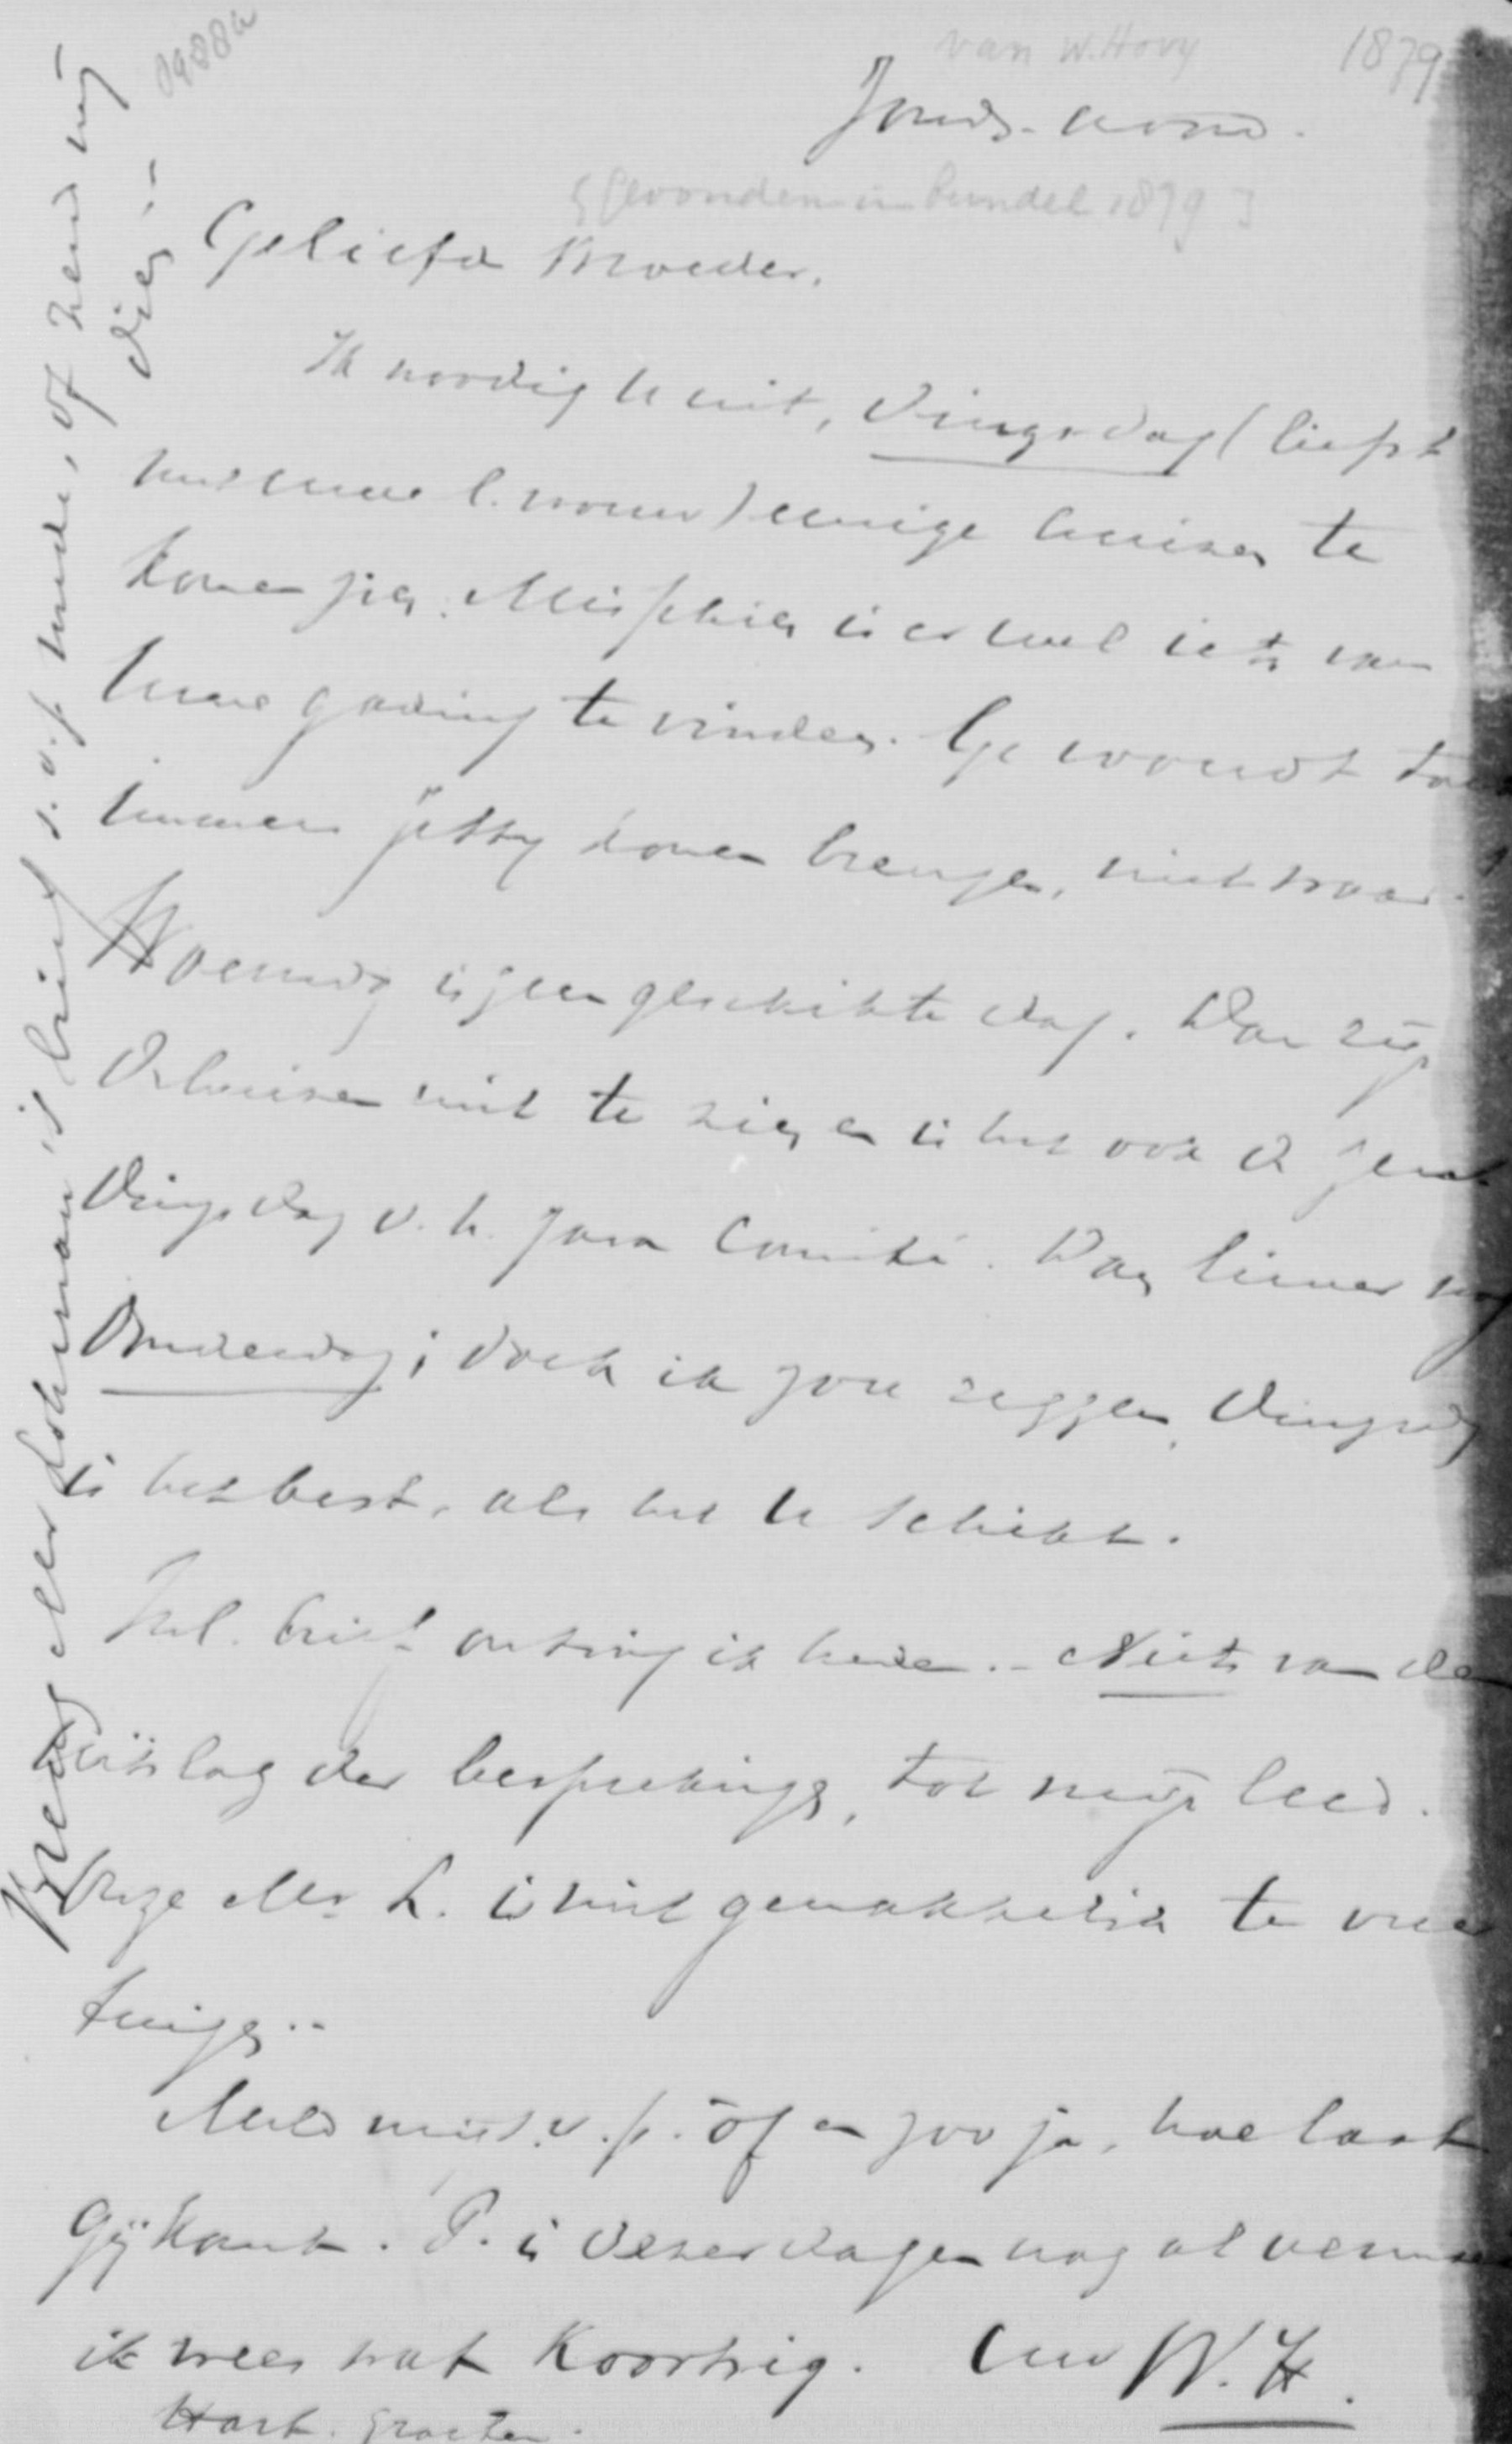 0988a
van W. Hovy
1879
Zond. avond.
[Gevonden in bundel 1879]
Geliefde Broeder,
Ik noodig U uit, Dingsdag (liefst
met uwe l. vrouw) eenige huizen te
komen zien. Misschien is er wel iets van
Uwe gading te vinden. Ge woudt toch
immers Jetty komen brengen, niet waar.
Woensdg is geen geschikte dag. Dan zijn
De huizen niet te zien en is het ook de
Dingsdag v. h. Java Comité. Dan liever nog
Donderdag; doch ik zou zeggen, Dingsdg
is het best, als het U schikt.
Uwl. brief ontving ik heden. – Niets van den
uitslag der besprekingen, tot mijn leed.
Onze Mr. L. is niet gemakkelijk te over
tuigen..
Meld mij s.v.p. òf en zoo ja, hoe laat
Gij komt. P. is dezer dagen nog al
ik vrees wat Koortsig. Uw W.H.
Hart. groeten.
Breng Mr Lohman's brief s.v.p. mede, of zend mij
dien..